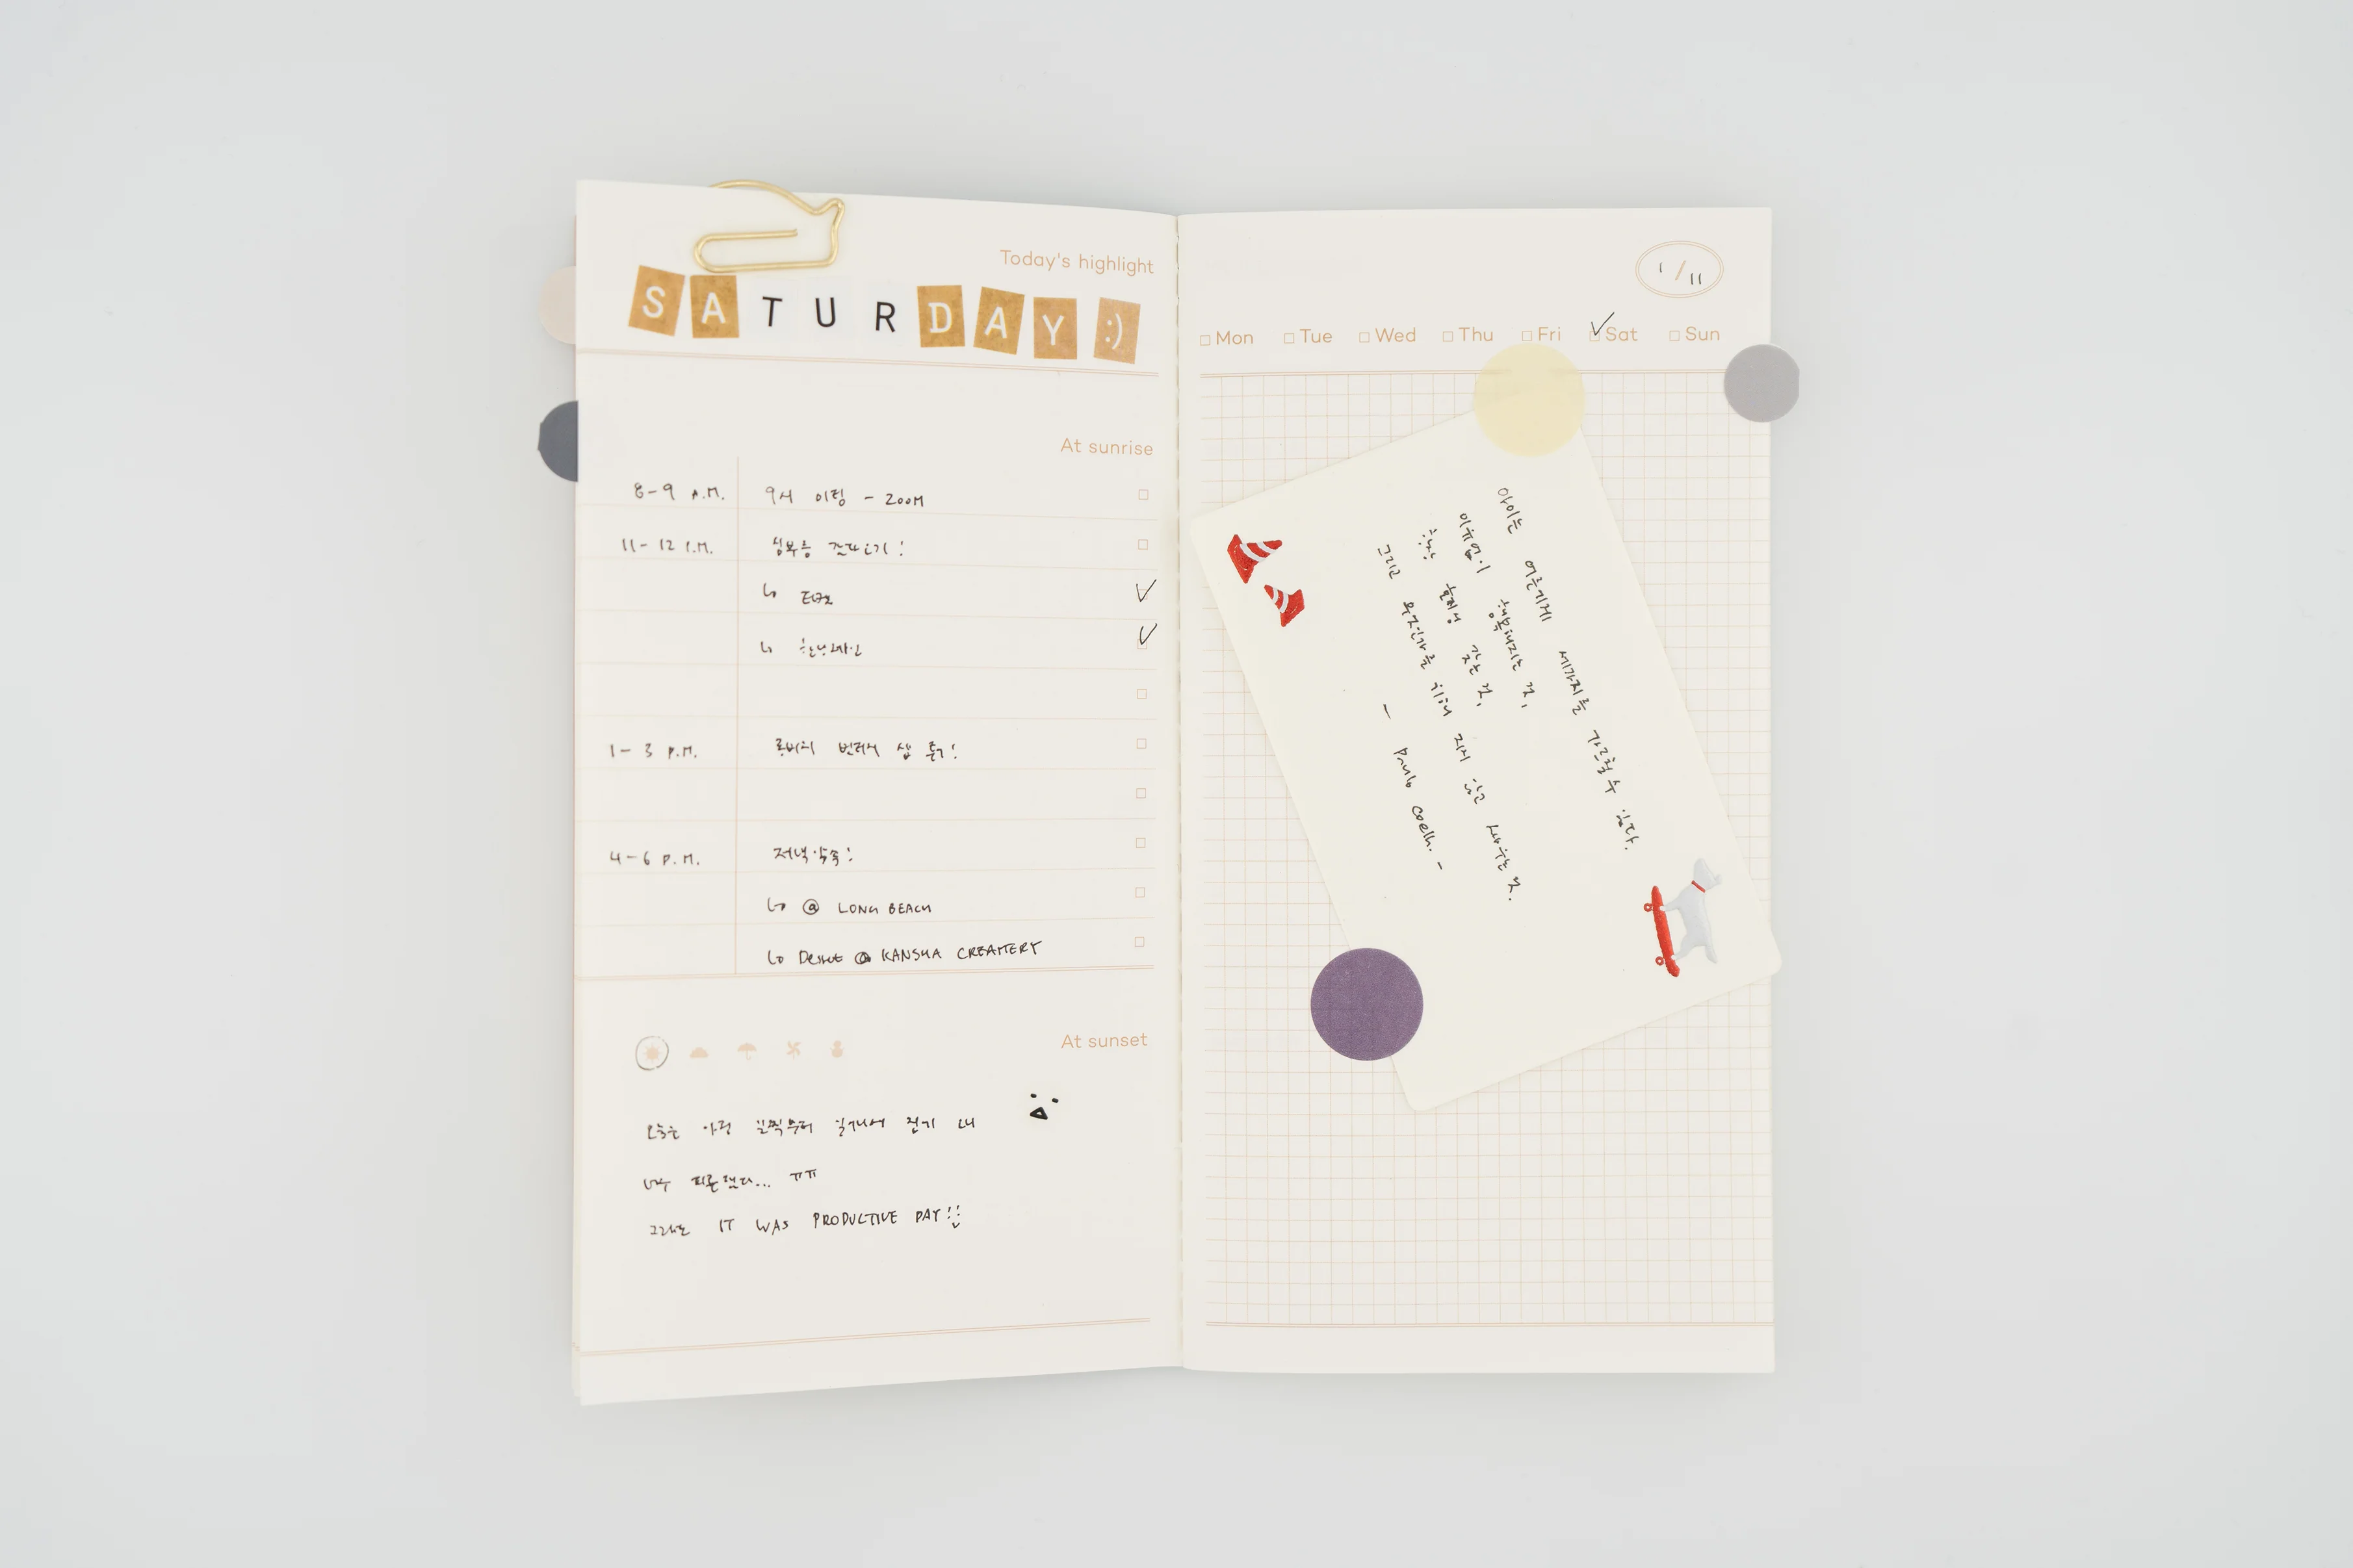 Today's highlight
SATURDAY :)
At sunrise
8-9 A.M. 9시 미팅 - ZOOM
11-12 P.M. 심부름 갔다오기!
↳
↳
1-3 P.M. 번려서 샵 돕기!
4-6 P.M. 저녁약속!
↳ @ LONG BEACH
↳ Dessert @ KANSHA CREAMERY
At sunset
오늘은 아침 일찍부터 일어나서 전기
너무 피곤했다... ㅠㅠ
그래도 IT WAS PRODUCTIVE DAY!!
1/11
Mon Tue Wed Thu Fri Sat Sun
아이는 어른에게 세가지를 가르칠 수 있다.
이유없이 행복해지는 것,
항상 호기심 갖는 것,
그리고 무언가를 위해 지치지 않고 싸우는 것.
- Paulo Coelho -